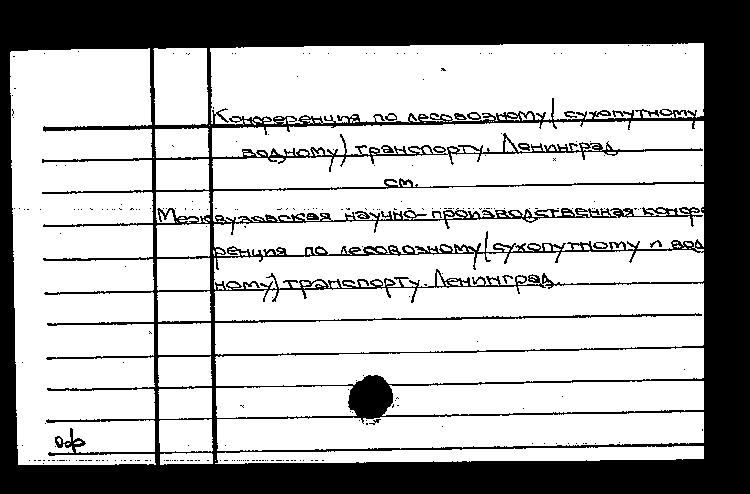 Конференция по лесовозному (сухопутному
водному) транспорту. Ленинград
см.
Межвузовская научно-производственная конфе
ренция по лесовозному (сухопутному и вод
ному) транспорту. Ленинград.